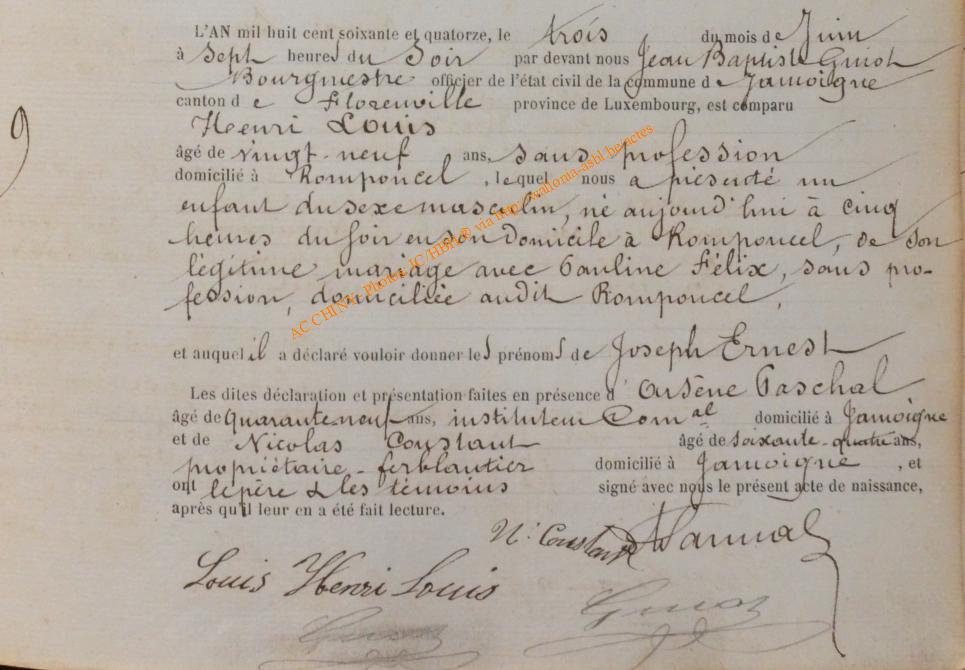 L'AN mil huit cent soixante et quatorze, le trois du mois de Juin
à Sept heures du Soir par devant nous Jean Baptiste Guiot
Bourgmestre officier de l'état civil de la commune de Jamoigne
canton de Florenville province de Luxembourg, est comparu
Henri Louis
âgé de vingt-neuf ans, sans profession
domicilié à Romponcel, lequel nous a présenté un
enfant du sexe masculin, né aujourd'hui à cinq
heures du soir en son domicile à Romponcel, de son
légitime mariage avec Pauline Félix, sans pro-
fession, domiciliée audit Romponcel,
et auquel il a déclaré vouloir donner les prénoms de Joseph Ernest
Les dites déclaration et présentation faites en présence d'Arsène Paschal
âgé de quarante neuf ans, instituteur Com.al domicilié à Jamoigne
et de Nicolas Constant âgé de soixante-quatre ans,
propriétaire-ferblantier domicilié à Jamoigne, et
ont le père & les témoins signé avec nous le présent acte de naissance,
après qu'il leur en a été fait lecture.
N. Constant
Louis Henri Louis
Guiot
AC CHINY. Photos JC/HBH® via http://wallonia-asbl.be/actes
9